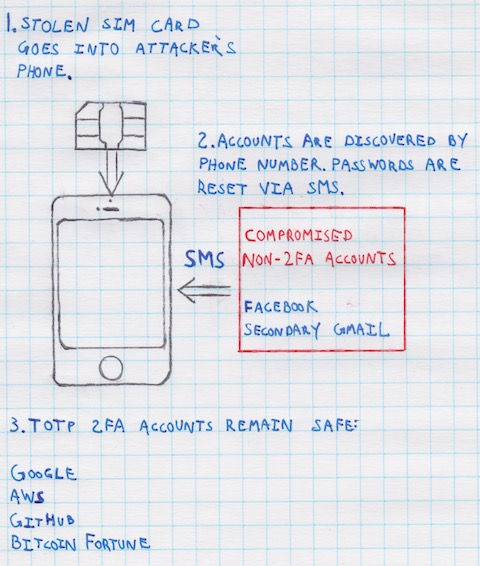 1. STOLEN SIM CARD
GOES INTO ATTACKER'S
PHONE.
2. ACCOUNTS ARE DISCOVERED BY
PHONE NUMBER. PASSWORDS ARE
RESET VIA SMS.
SMS
COMPROMISED
NON-2FA ACCOUNTS
FACEBOOK
SECONDARY GMAIL
3. TOTP 2FA ACCOUNTS REMAIN SAFE:
GOOGLE
AWS
GITHUB
BITCOIN FORTUNE